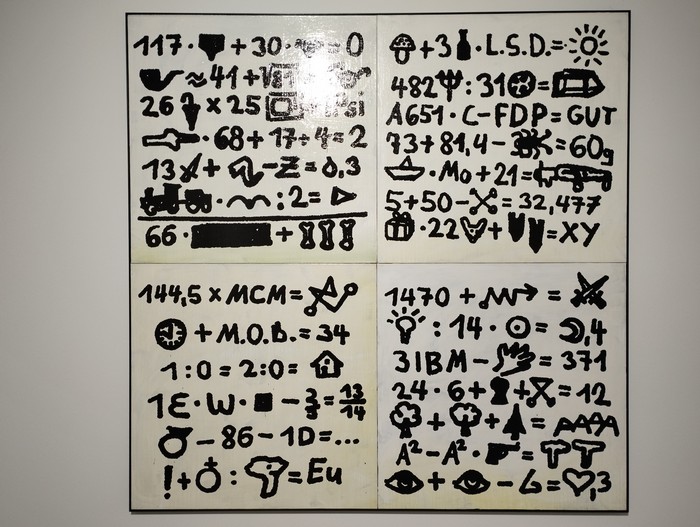 117 · + 30 · = 0
≈ 41 +
26 x 25
· 68 + 17 + 4 = 2
13 + - Z = 0,3
· : 2 =
66 · +
+ 3 · L.S.D. =
482 : 31 =
A651 · C - FDP = GUT
73 + 81,4 - = 60g
· Mo + 21 =
5 + 50 - = 32,477
· 22 + = XY
144,5 x MCM =
+ M.O.B. = 34
1 : 0 = 2 : 0 =
1E · W · ■ - = 13/14
- 86 - 1D = ...
! + : = Eu
1470 + =
: 14 · = ,4
3IBM - = 371
24 · 6 + + = 12
+ + =
A² - A² · = TT
+ - = ♡,3